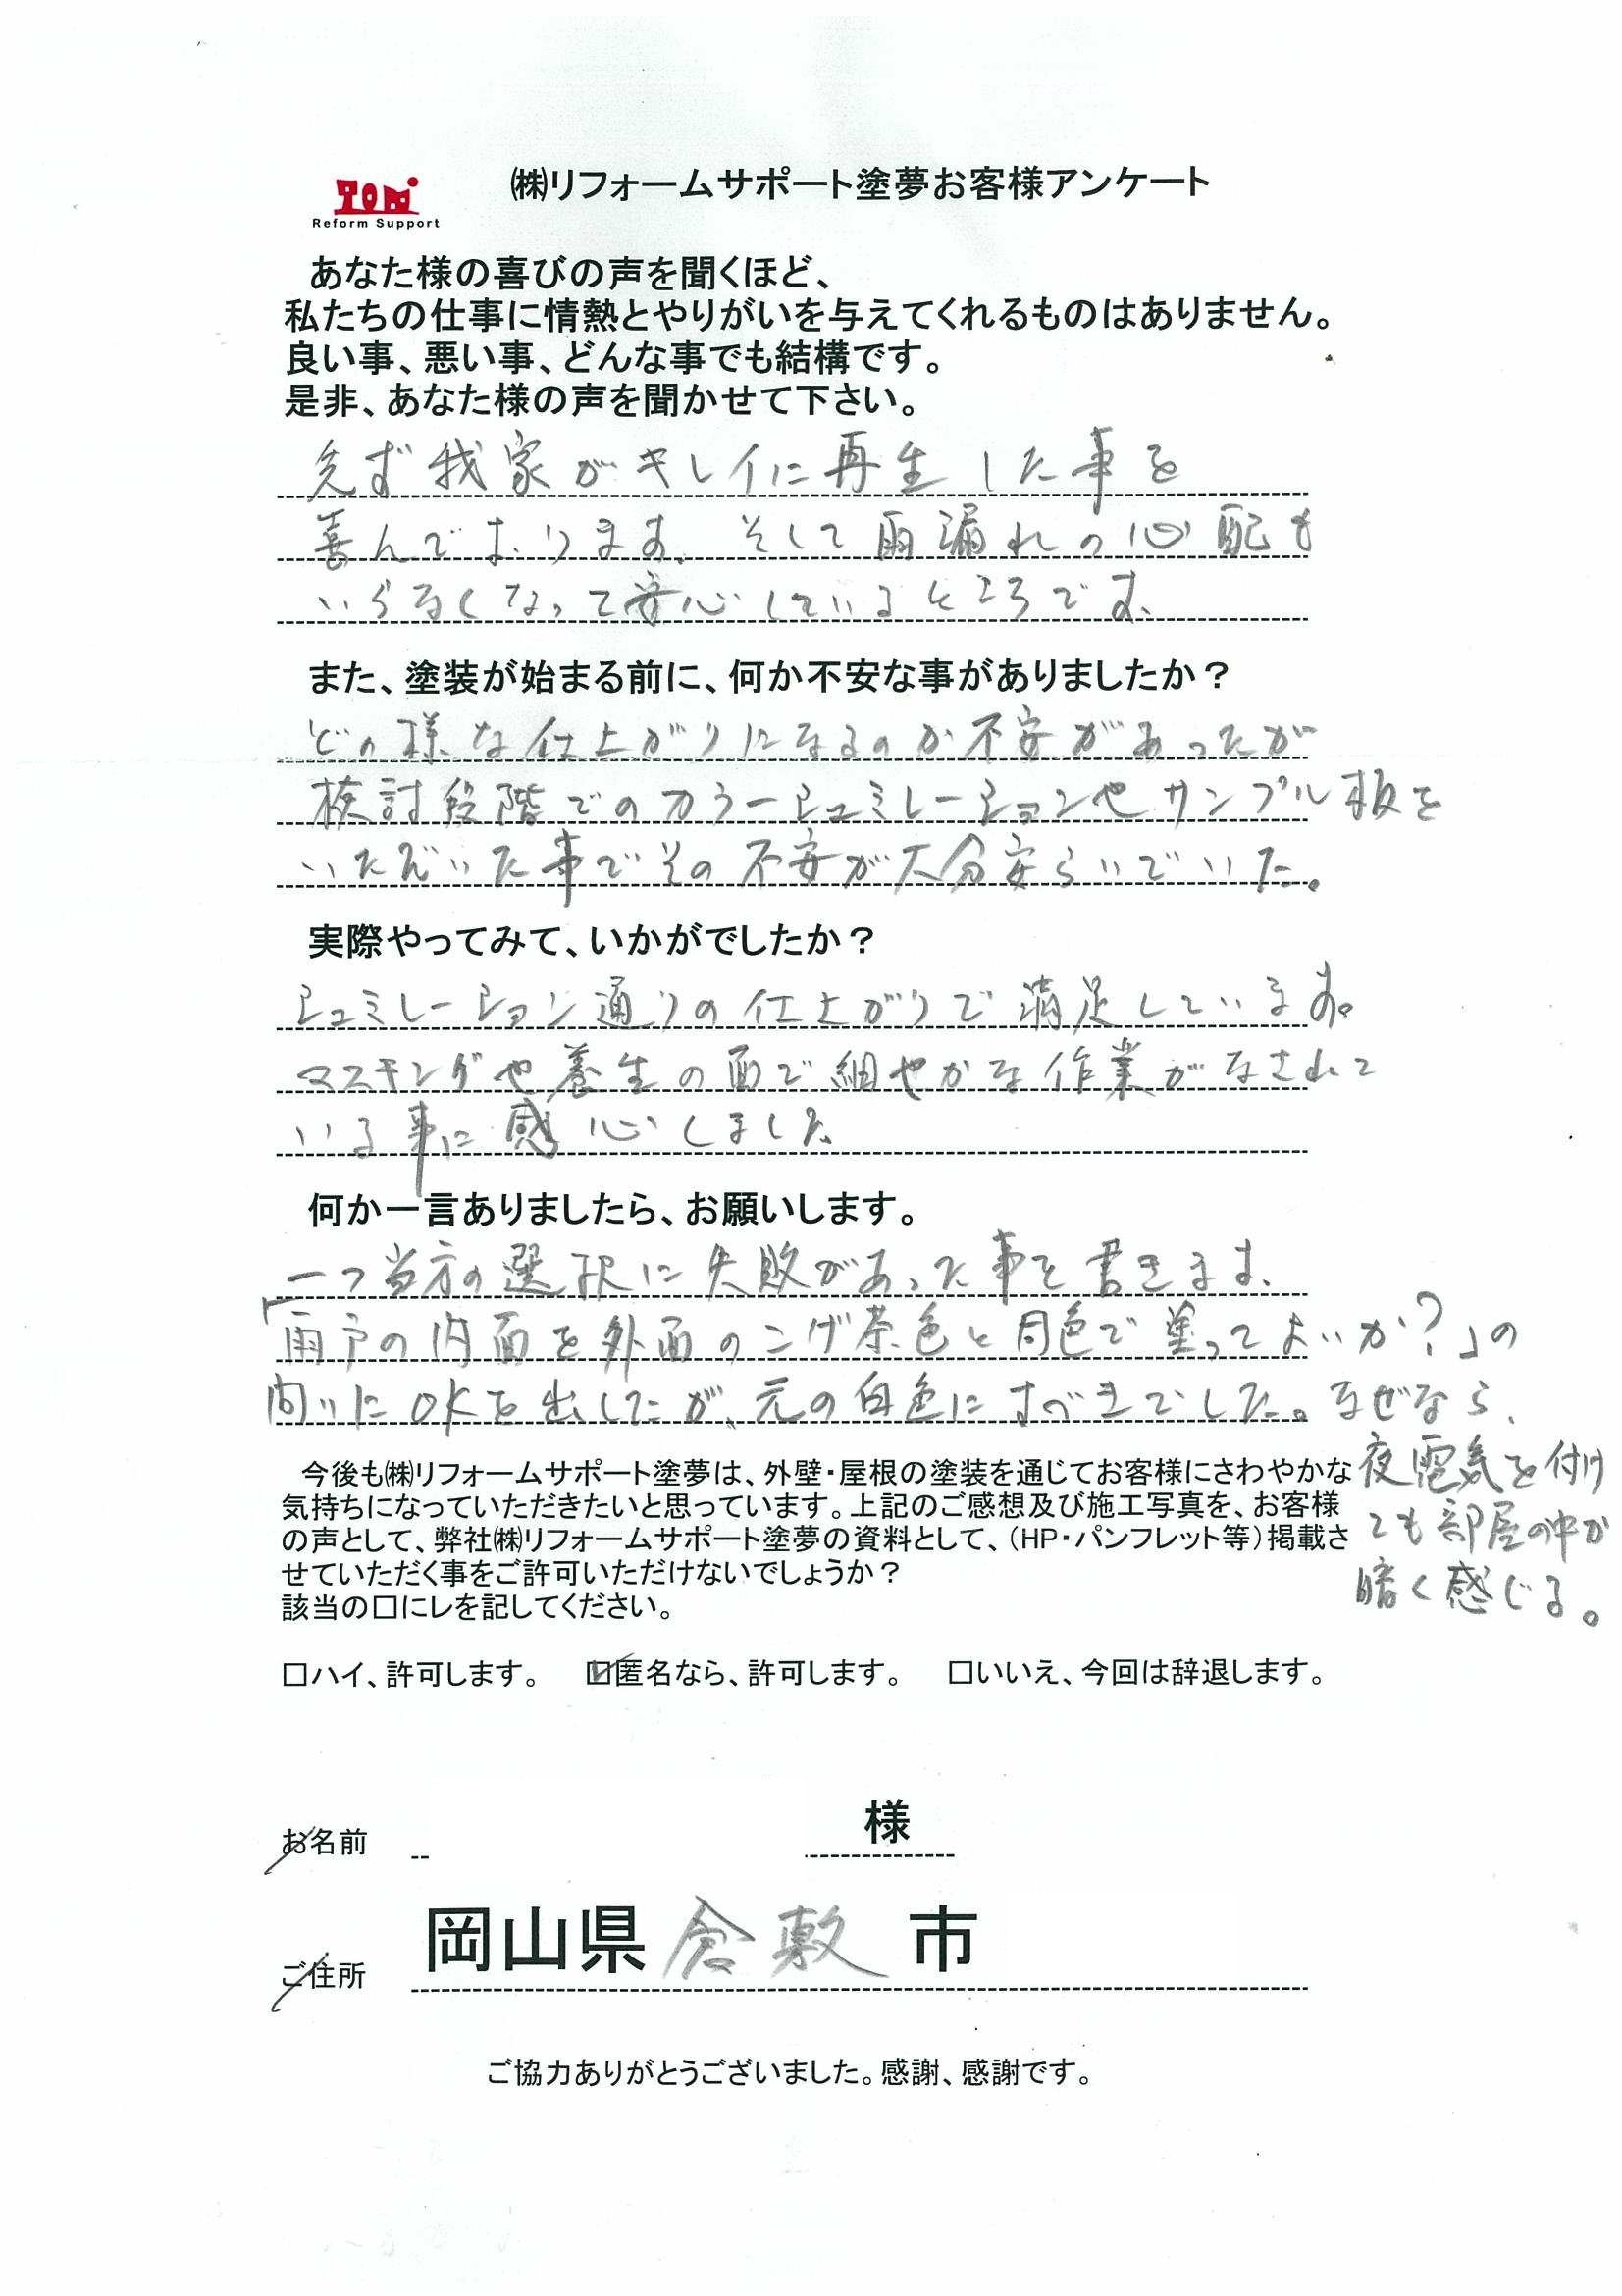 TOM
Reform Support
㈱リフォームサポート塗夢お客様アンケート
あなた様の喜びの声を聞くほど、
私たちの仕事に情熱とやりがいを与えてくれるものはありません。
良い事、悪い事、どんな事でも結構です。
是非、あなた様の声を聞かせて下さい。
先ず我家がキレイに再生した事を
喜んでおります。そして雨漏れの心配も
いらなくなって安心しているところです。
また、塗装が始まる前に、何か不安な事がありましたか？
どの様な仕上がりになるのか不安があったが
検討段階でのカラーシュミレーションやサンプル板を
いただいた事でその不安が大分安らいでいた。
実際やってみて、いかがでしたか？
シュミレーション通りの仕上がりで満足しています。
マスキングや養生の面で細やかな作業がなされて
いる事に感心しました。
何か一言ありましたら、お願いします。
一つ当方の選択に失敗があった事を書きます。
「雨戸の内面を外面のこげ茶色と同色で塗ってよいか？」の
問いにOKを出したが、元の白色にすべきでした。なぜなら、
夜電気を付け
ても部屋の中が
暗く感じる。
今後も㈱リフォームサポート塗夢は、外壁・屋根の塗装を通じてお客様にさわやかな
気持ちになっていただきたいと思っています。上記のご感想及び施工写真を、お客様
の声として、弊社㈱リフォームサポート塗夢の資料として、（HP・パンフレット等）掲載さ
せていただく事をご許可いただけないでしょうか？
該当の□にレを記してください。
□ハイ、許可します。 ☑匿名なら、許可します。 □いいえ、今回は辞退します。
お名前 様
ご住所 岡山県倉敷市
ご協力ありがとうございました。感謝、感謝です。